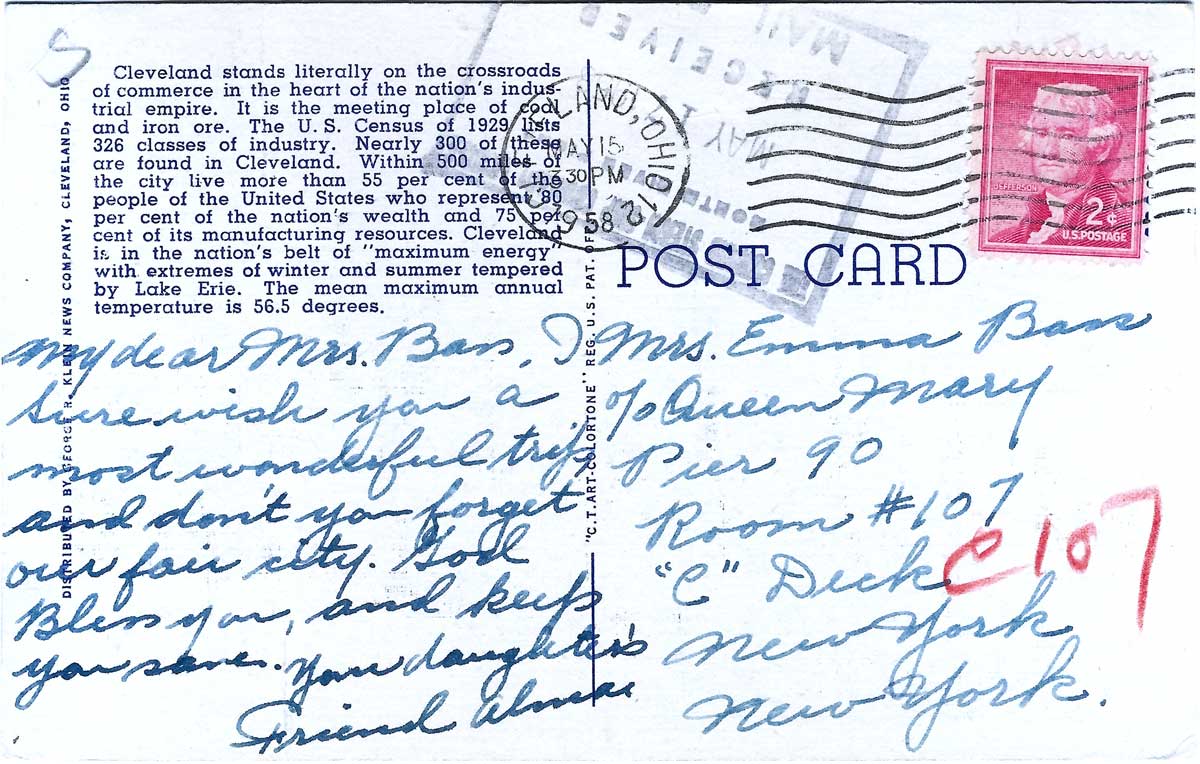 Cleveland stands literally on the crossroads
of commerce in the heart of the nation's indus-
trial empire. It is the meeting place of coal
and iron ore. The U. S. Census of 1929 lists
326 classes of industry. Nearly 300 of these
are found in Cleveland. Within 500 miles of
the city live more than 55 per cent of the
people of the United States who represent 80
per cent of the nation's wealth and 75 per
cent of its manufacturing resources. Cleveland
is in the nation's belt of "maximum energy"
with extremes of winter and summer tempered
by Lake Erie. The mean maximum annual
temperature is 56.5 degrees.
DISTRIBUTED BY GEORGE R. KLEIN NEWS COMPANY, CLEVELAND, OHIO
"C.T. ART-COLORTONE" REG. U. S. PAT. OFF.
CLEVELAND, OHIO 12
MAY 15
3 30 PM
1958
RECEIVED
MAIL
MAY
JEFFERSON
2¢
U.S. POSTAGE
POST CARD
My dear Mrs. Ban, I
sure wish you a
most wonderful trip
and don't you forget
our fair city. God
Bless you, and keep
you
Your daughter's
Friend
Mrs. Emma Ban
c/o Queen Mary
Pier 90
Room #107
"C" Deck
New York
New York.
C 107